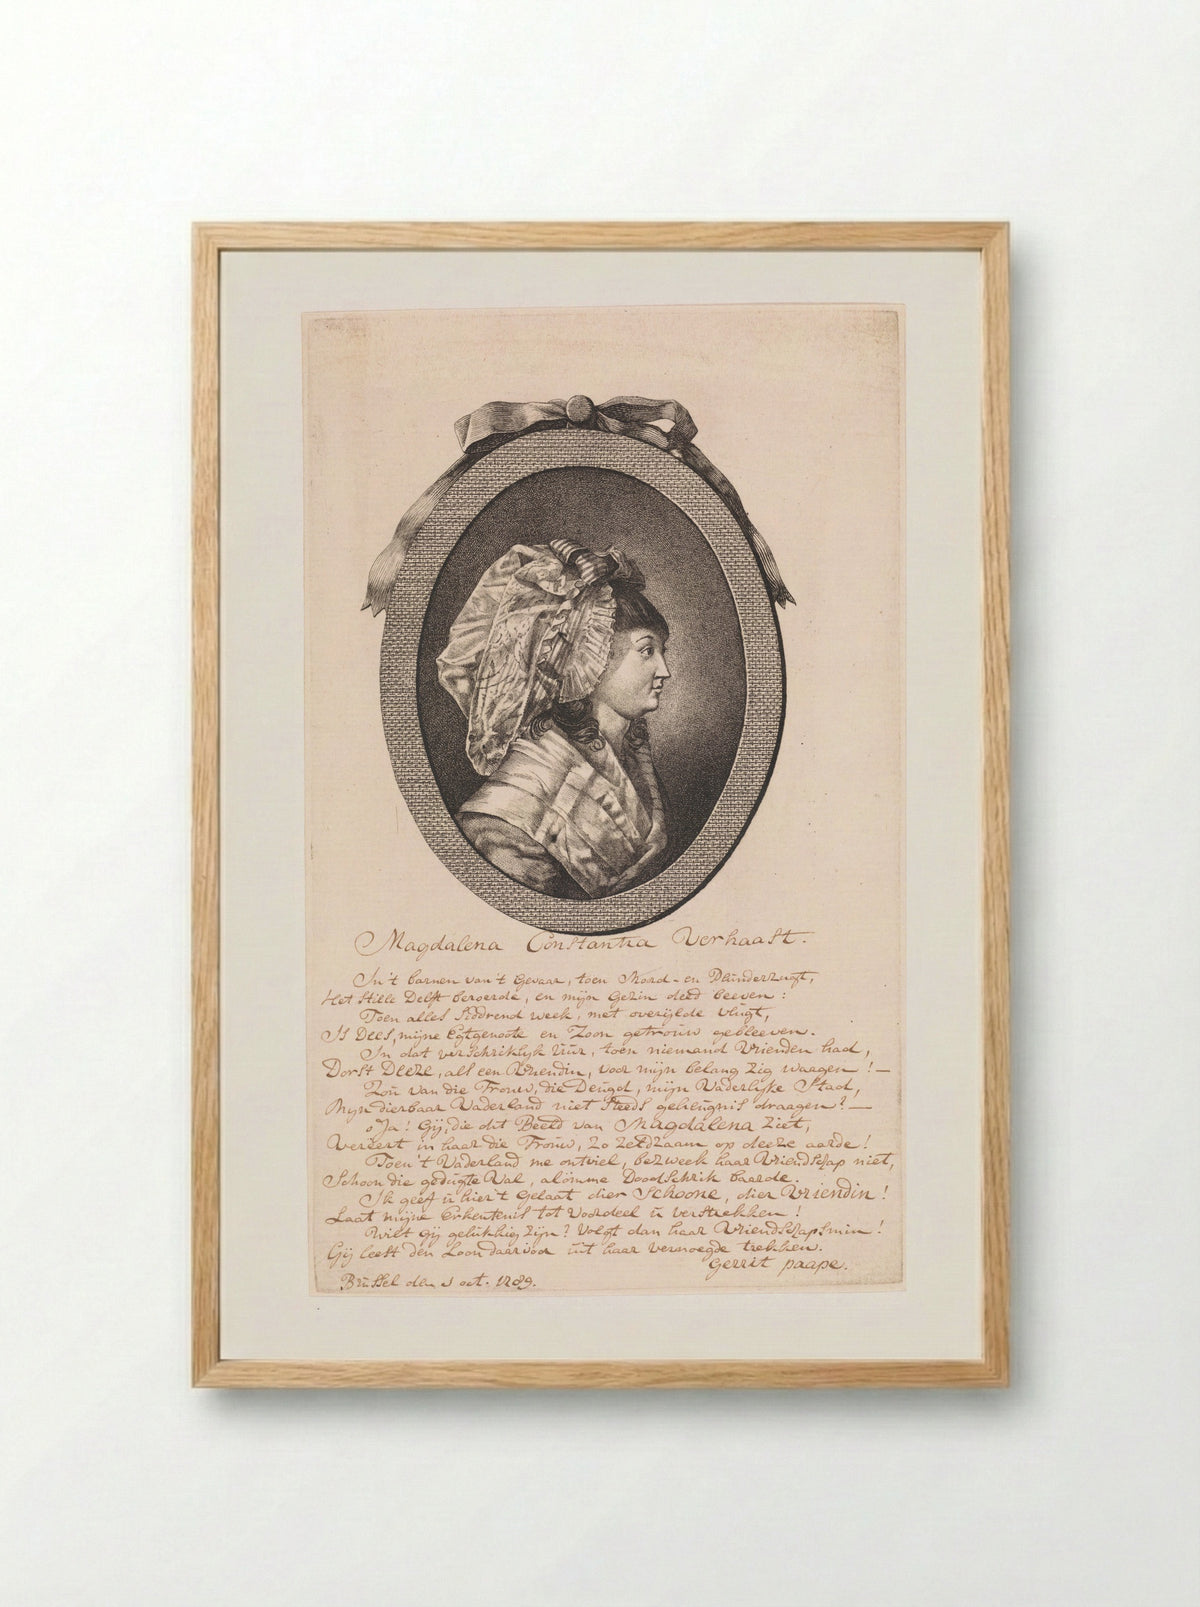 Magdalena Constantia Verhaast.
In't barnen van't Gevaar, toen Moord- en Plünderzügt,
Het Stille Delft beroerde, en mijn Gezin deed beeven:
Toen alles Siddrend week, met overijlde vlügt,
Is Deese, mijne Egtgenoote en Zoon getroüw gebleeven.
In dat verschriklijk Uür, toen niemand Vrienden had,
Dorst Deeze, als een Vriendin, voor mijn belang zig waagen!—
Zoü van die Troüw, die Deügd, mijn Vaderlijke Stad,
Mijn dierbaar Vaderland niet Steeds geheügnis draagen?—
o Ja! Gij, die dit Beeld van Magdalena Ziet,
Vereert in haar die Troüw, Zo Zeldzaam op deeze aarde!
Toen't Vaderland me ontviel, bezweek haar Vriendschap niet,
Schoon die gedügte Val, alömme Doodschrik baarde.
Ik geef ü hier't Gelaat dier Schoone, dier Vriendin!
Laat mijne Erkentenis tot Voordeel ü verstrekken!
Wilt Gij gelükkig Zijn? Volgt dan haar Vriendschapsmin!
Gij leest den Loon daarvoor üit haar vernoegde trekken.
Gerrit paape.
Brüssel den 1 oct. 1789.